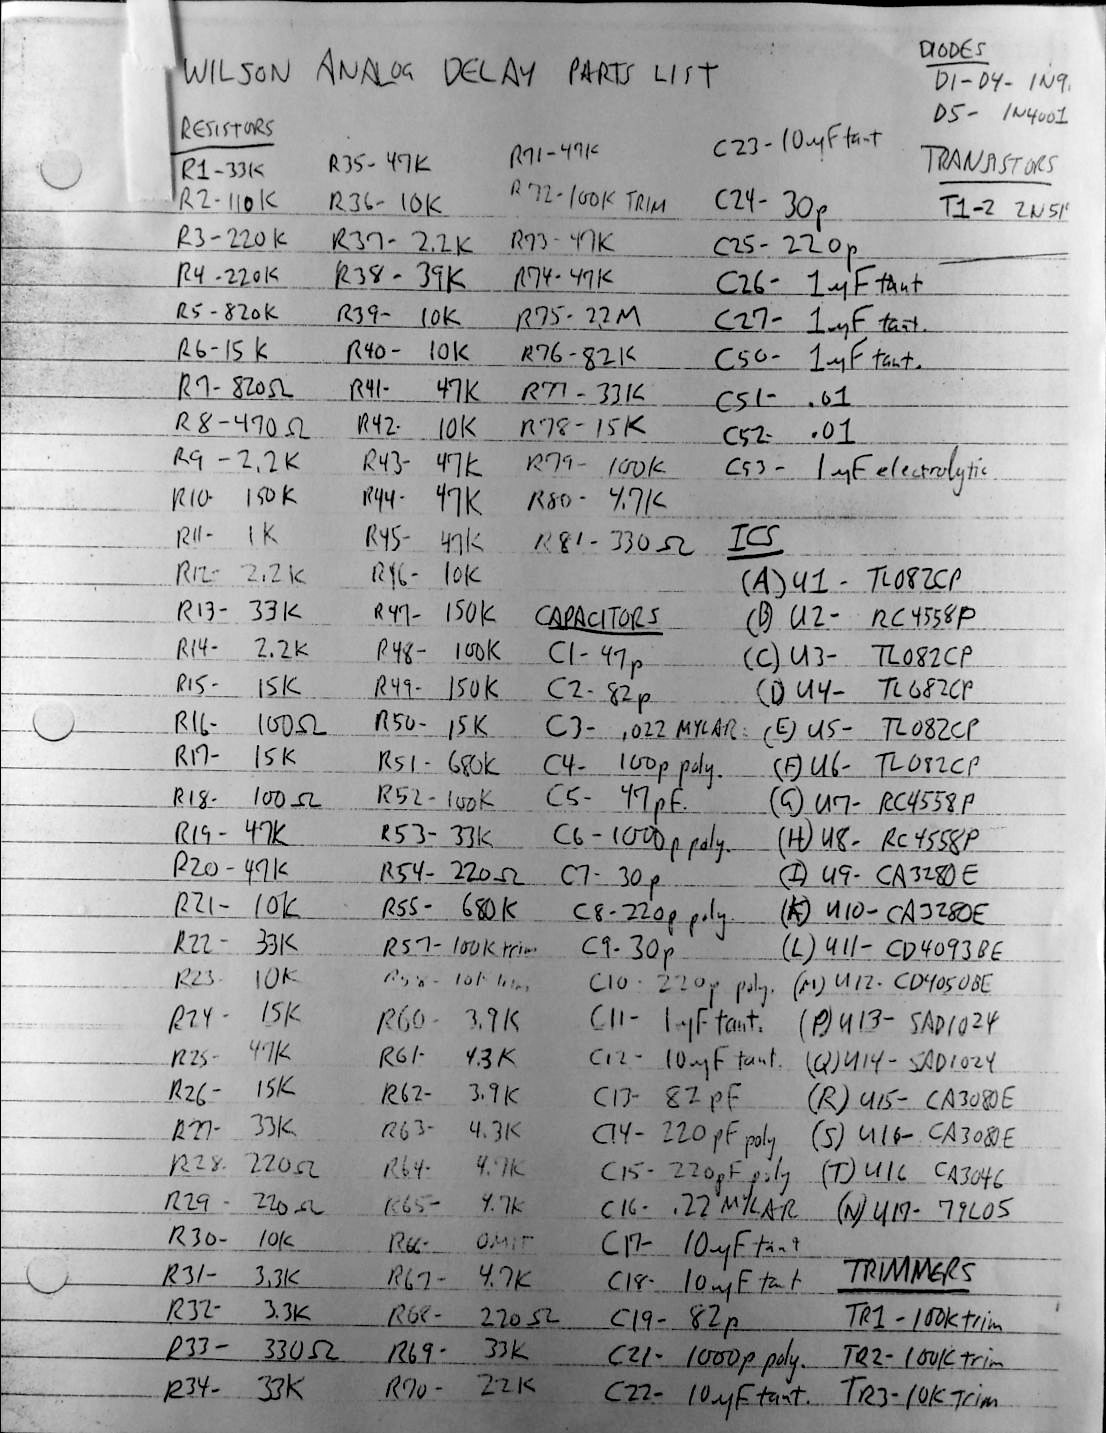 WILSON ANALOG DELAY PARTS LIST
RESISTORS
R1-33K
R2-110K
R3-220K
R4-220K
R5-820K
R6-15K
R7-820Ω
R8-470Ω
R9-2.2K
R10- 150K
R11- 1K
R12- 2.2K
R13- 33K
R14- 2.2K
R15- 15K
R16- 100Ω
R17- 15K
R18- 100Ω
R19- 47K
R20-47K
R21- 10K
R22- 33K
R23- 10K
R24- 15K
R25- 47K
R26- 15K
R27- 33K
R28- 220Ω
R29- 220Ω
R30- 10K
R31- 3.3K
R32- 3.3K
R33- 330Ω
R34- 33K
R35-47K
R36-10K
R37-2.2K
R38-39K
R39- 10K
R40- 10K
R41- 47K
R42- 10K
R43- 47K
R44- 47K
R45- 47K
R46- 10K
R47- 150K
R48- 100K
R49- 150K
R50- 15K
R51- 680K
R52-100K
R53-33K
R54-220Ω
R55- 680K
R57-100K trim
R58- 10K trim
R60- 3.9K
R61- 4.3K
R62- 3.9K
R63- 4.3K
R64- 4.7K
R65- 4.7K
R66- OMIT
R67- 4.7K
R68- 220Ω
R69- 33K
R70- 22K
R71-47K
R72-100K TRIM
R73-47K
R74-47K
R75-22M
R76-82K
R77-33K
R78-15K
R79- 100K
R80- 4.7K
R81-330Ω
CAPACITORS
C1-47p
C2-82p
C3- .022 MYLAR
C4- 100p poly.
C5- 47pF.
C6-1000p poly.
C7-30p
C8-220p poly.
C9-30p
C10- 220p poly.
C11- 1uF tant.
C12- 10uF tant.
C13- 82pF
C14-220pF poly
C15-220pF poly
C16- .22 MYLAR
C17- 10uF tant
C18- 10uF tant
C19- 82p
C21- 1000p poly.
C22- 10uF tant.
C23-10uF tant
C24- 30p
C25-220p
C26- 1uF tant
C27- 1uF tant.
C50- 1uF tant.
C51- .01
C52- .01
C53- 1uF electrolytic
ICS
(A) U1- TL082CP
(B) U2- RC4558P
(C) U3- TL082CP
(D) U4- TL082CP
(E) U5- TL082CP
(F) U6- TL082CP
(G) U7- RC4558P
(H) U8- RC4558P
(I) U9-CA3280E
(K) U10-CA3280E
(L) U11-CD4093BE
(M) U12-CD4050BE
(P) U13-SAD1024
(Q) U14-SAD1024
(R) U15-CA3080E
(S) U16-CA3080E
(T) U16 CA3046
(N) U17-79L05
TRIMMERS
TR1-100K trim
TR2-100K trim
TR3-10K Trim
DIODES
D1-D4- 1N9
D5- 1N4001
TRANSISTORS
T1-2 2N51